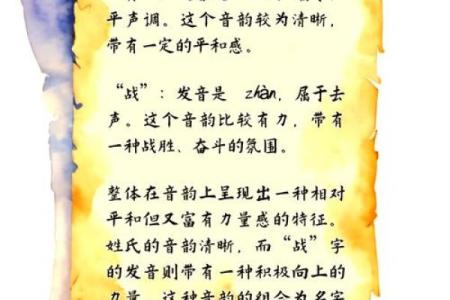 平声调。这个音韵较为清晰，
带有一定的平和感。
“战”：发音是 zhàn，属于去
声。这个音韵比较有力，带有
一种战胜、奋斗的氛围。
整体在音韵上呈现出一种相对
平和但又富有力量感的特征。
姓氏的音韵清晰，而“战”字
的发音则带有一种积极向上的
力量。这种音韵的组合为名字